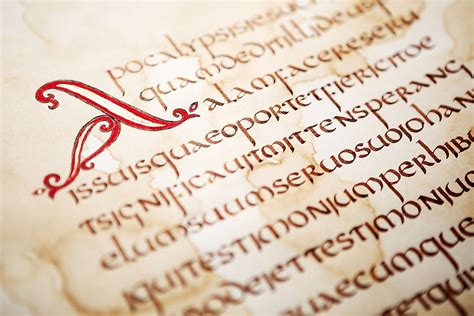 Apocalypsisiesuc
quamdeditillideus
alamfacereseru
issuisquaeoportetfiericitoe
tsignificauitmittensperang
elumsuumseruosuoiohan
iquitestimoniumperhibe
bodeiettestimonium
uaecumque